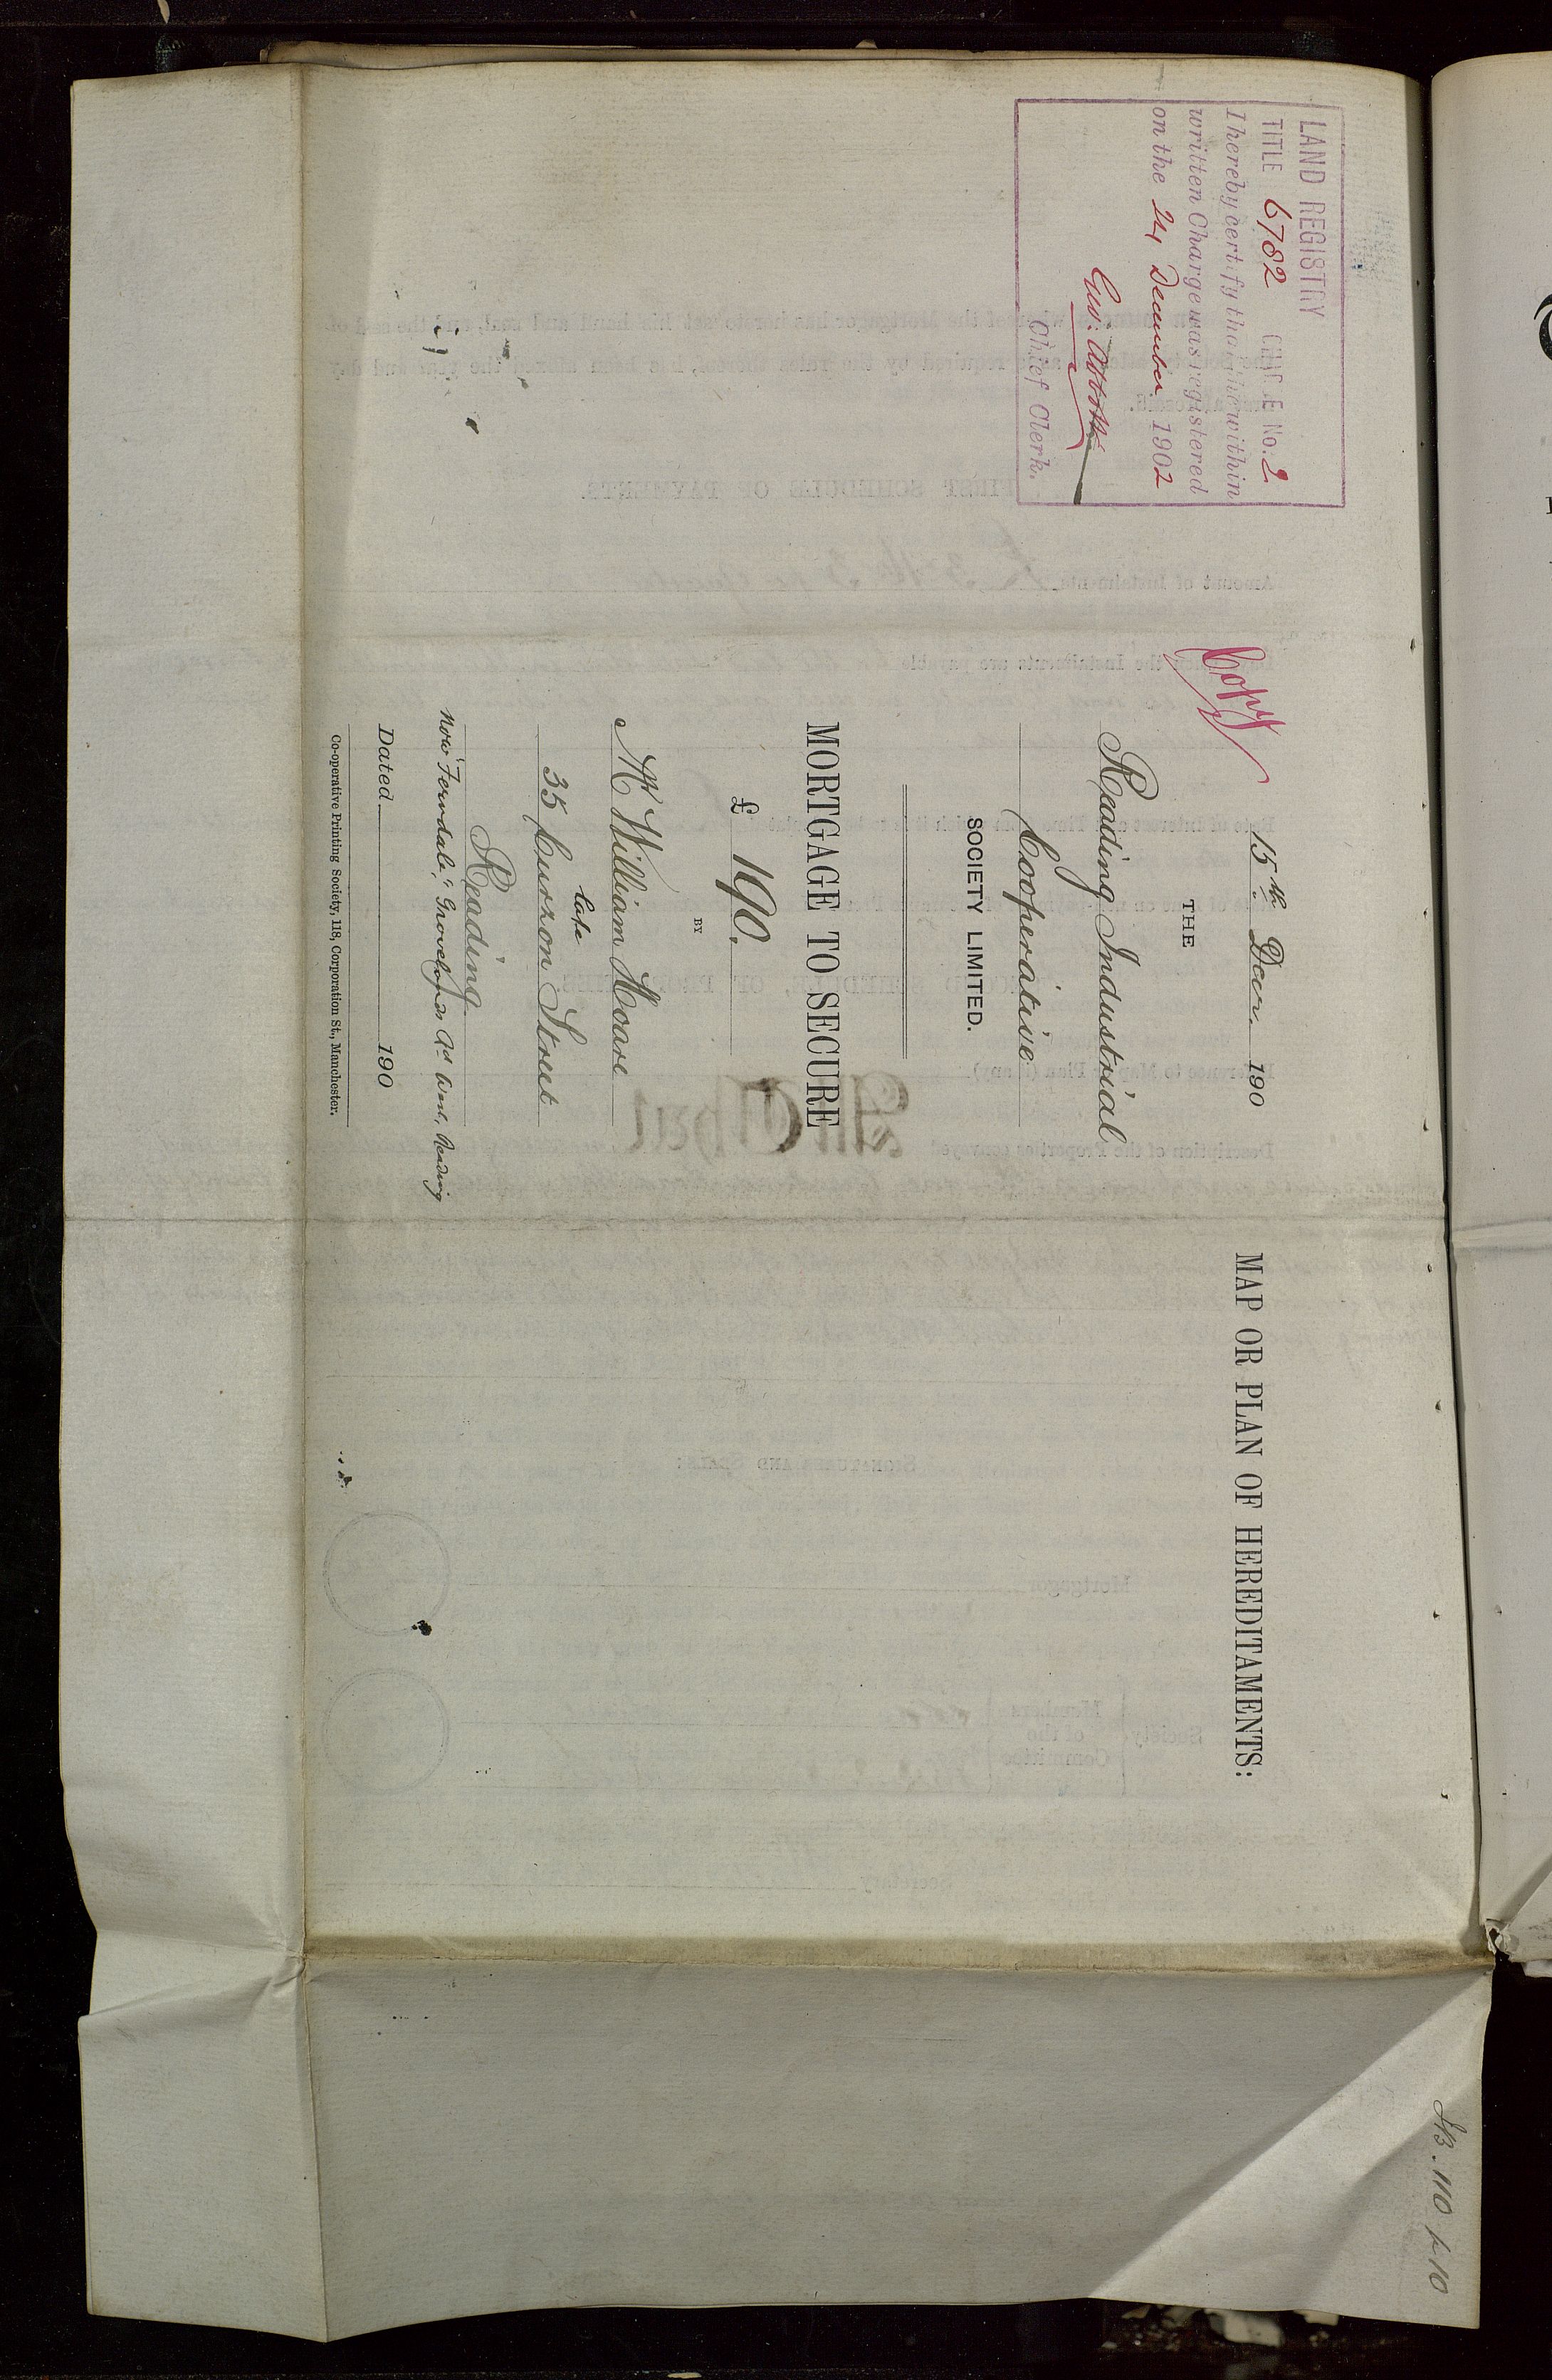 LAND REGISTRY
TITLE 6782 CHARGE No. 2
I hereby certify that the within
written Charge was registered
on the 24 December 1902
Chief Clerk.
Copy
15th Decr. 190
THE
Reading Industrial
Cooperative
SOCIETY LIMITED.
MORTGAGE TO SECURE
£ 190.
BY
Mr William Hoare
late
35 Curzon Street
Reading
now "Ferndale," Grovelands Rd West, Reading
Dated 190
Co-operative Printing Society, 118, Corporation St., Manchester.
MAP OR PLAN OF HEREDITAMENTS:
110 10